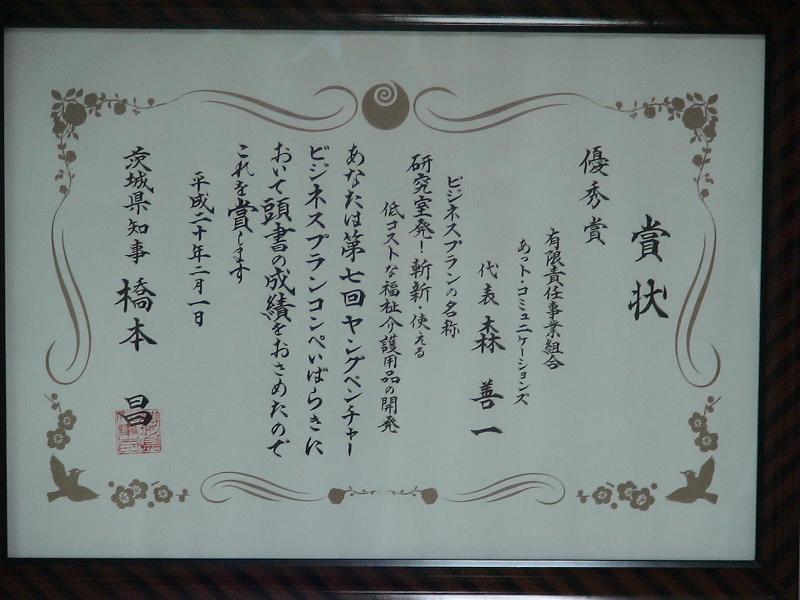 賞状
優秀賞
有限責任事業組合
あっト・コミュニケーションズ
代表 森善一
ビジネスプランの名称
研究室発！斬新・使える
低コストな福祉介護用品の開発
あなたは第七回ヤングベンチャー
ビジネスプランコンペいばらきに
おいて頭書の成績をおさめたので
これを賞します
平成二十年二月一日
茨城県知事 橋本 昌